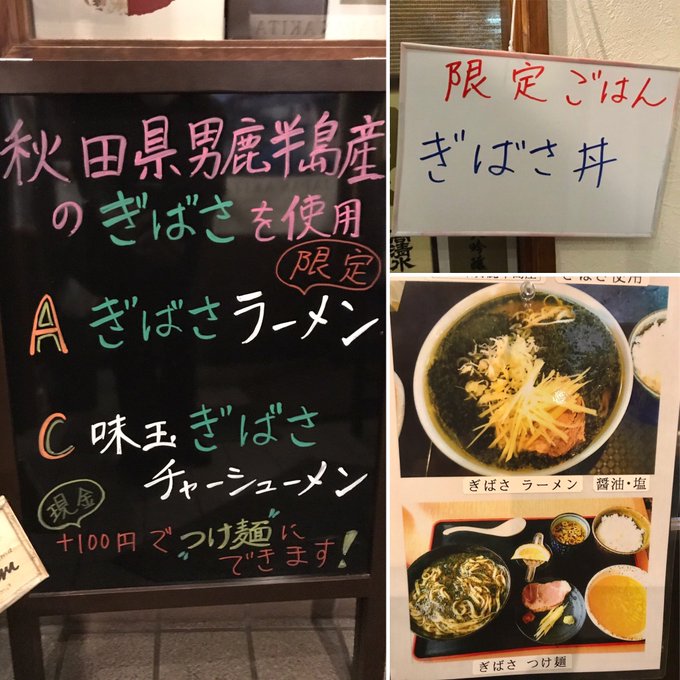 AKITA
秋田県男鹿半島産
のぎばさを使用
限定
A ぎばさラーメン
C 味玉ぎばさ
チャーシューメン
現金
+100円で"つけ麺"に
できます!
限定ごはん
ぎばさ丼
吟醸
ぎばさ使用
ぎばさ ラーメン 醤油・塩
ぎばさ つけ麺